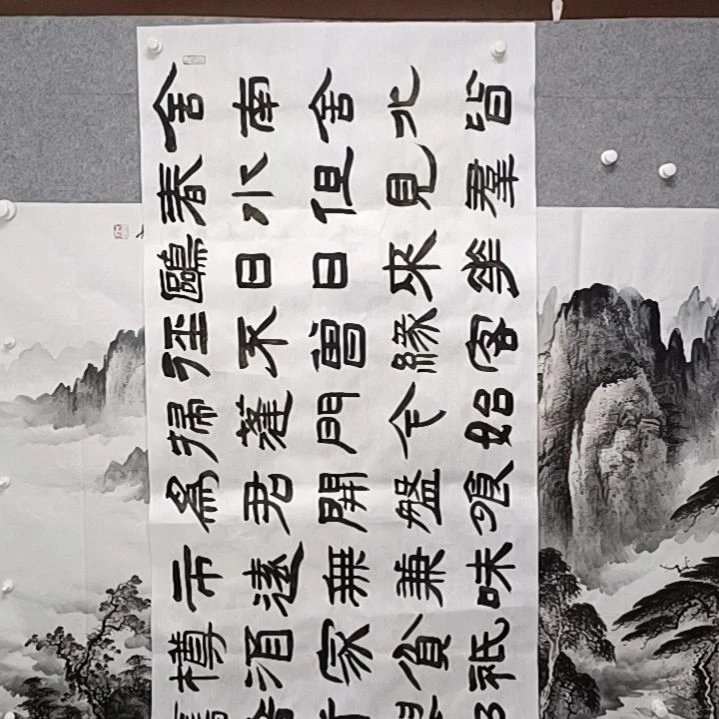 舍南舍北皆
春水但見羣
鷗日日來華
徑不曾緣客
掃蓬門今始
為君開盤飧
市遠無兼味
樽酒家貧祇